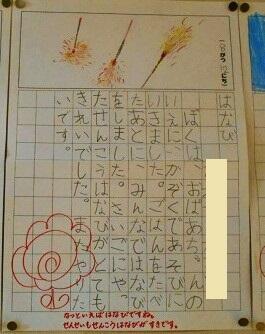 はなび
ぼくは、おばあちゃんの
いえに、かぞくであそびに
いきました。ごはんをたべ
たあとに、みんなではなび
をしました。さいごにやっ
たせんこうはなびがとても
きれいでした。またやりた
いです。
なつといえば はなびですね。
せんせいもせんこうはなびがすきです。